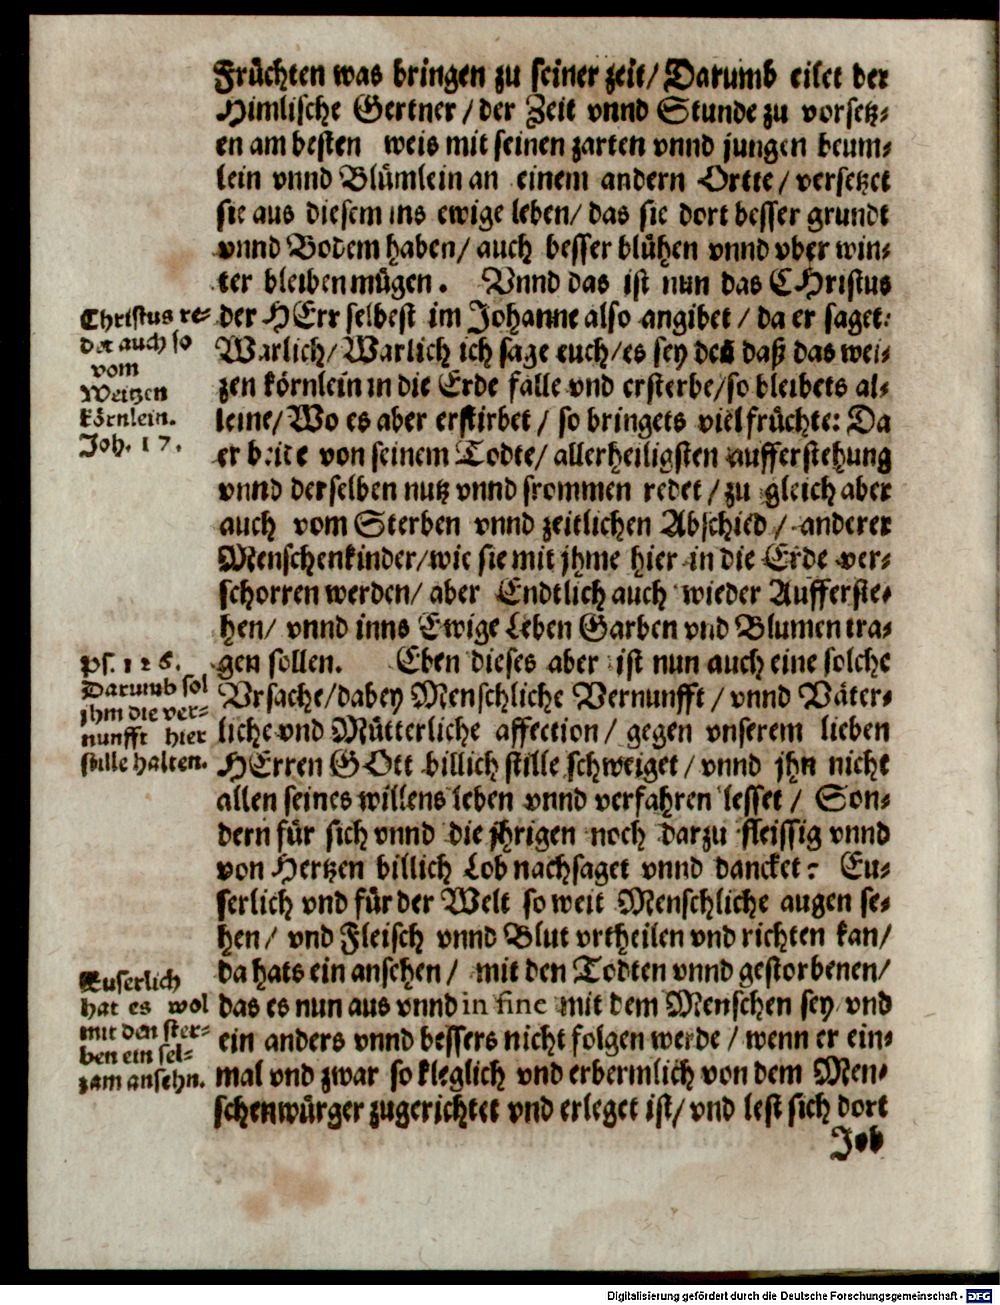 Früchten was bringen zu seiner zeit/ Darumb eilet der
Himlische Gertner / der Zeit vnnd Stunde zu vorsetz-
en am besten weis mit seinen zarten vnnd jungen beum-
lein vnnd Blümlein an einem andern Ortte / versetzet
sie aus diesem ins ewige leben/ das sie dort besser grundt
vnnd Bodem haben/ auch besser blühen vnnd vber win-
ter bleiben mügen. Vnnd das ist nun das CHristus
der HErr selbest im Johanne also angibet / da er saget:
Warlich/ Warlich ich sage euch/ es sey des daß das wei-
zen körnlein in die Erde falle vnd ersterbe/ so bleibets al-
leine/ Wo es aber erstirbet / so bringets viel früchte: Da
er beite von seinem Todte/ allerheiligsten aufferstehung
vnnd derselben nutz vnnd frommen redet / zu gleich aber
auch vom Sterben vnnd zeitlichen Abschied / anderer
Menschenkinder/ wie sie mit jhme hier in die Erde ver-
schorren werden/ aber Endtlich auch wieder Aufferste-
hen/ vnnd inns Ewige Leben Garben vnd Blumen tra-
gen sollen. Eben dieses aber ist nun auch eine solche
Vrsache/ dabey Menschliche Vernunfft / vnnd Väter-
liche vnd Mütterliche affection / gegen vnserem lieben
HErren GOtt billich stille schweiget / vnnd jhn nicht
allen seines willens leben vnnd verfahren lesset / Son-
dern für sich vnnd die jhrigen noch darzu fleissig vnnd
von Hertzen billich Lob nachsaget vnnd dancket: Eu-
serlich vnd für der Welt so weit Menschliche augen se-
hen/ vnd Fleisch vnnd Blut vrtheilen vnd richten kan/
da hats ein ansehen / mit den Todten vnnd gestorbenen/
das es nun aus vnnd in fine mit dem Menschen sey vnd
ein anders vnnd bessers nicht folgen werde / wenn er ein-
mal vnd zwar so kleglich vnd erbermlich von dem Men-
schenwürger zugerichtet vnd erleget ist/ vnd lest sich dort
Job
Christus re-
det auch so
vom
Weitzen
körnlein.
Joh. 17.
Ps. 126.
Darumb sol
jhm die ver-
nunfft hier
stille halten.
Euserlich
hat es wol
mit den ster-
ben ein sel-
zam ansehn.
Digitalisierung gefördert durch die Deutsche Forschungsgemeinschaft - DFG